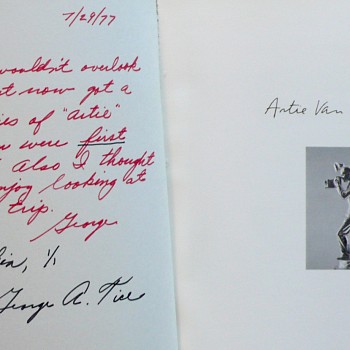 7/29/77
wouldn't overlook
st now got a
ies of "Artie"
u were first
Also I thought
njoy looking at
Erip.
George
in, 1/1
George A. Tice
Artie Van